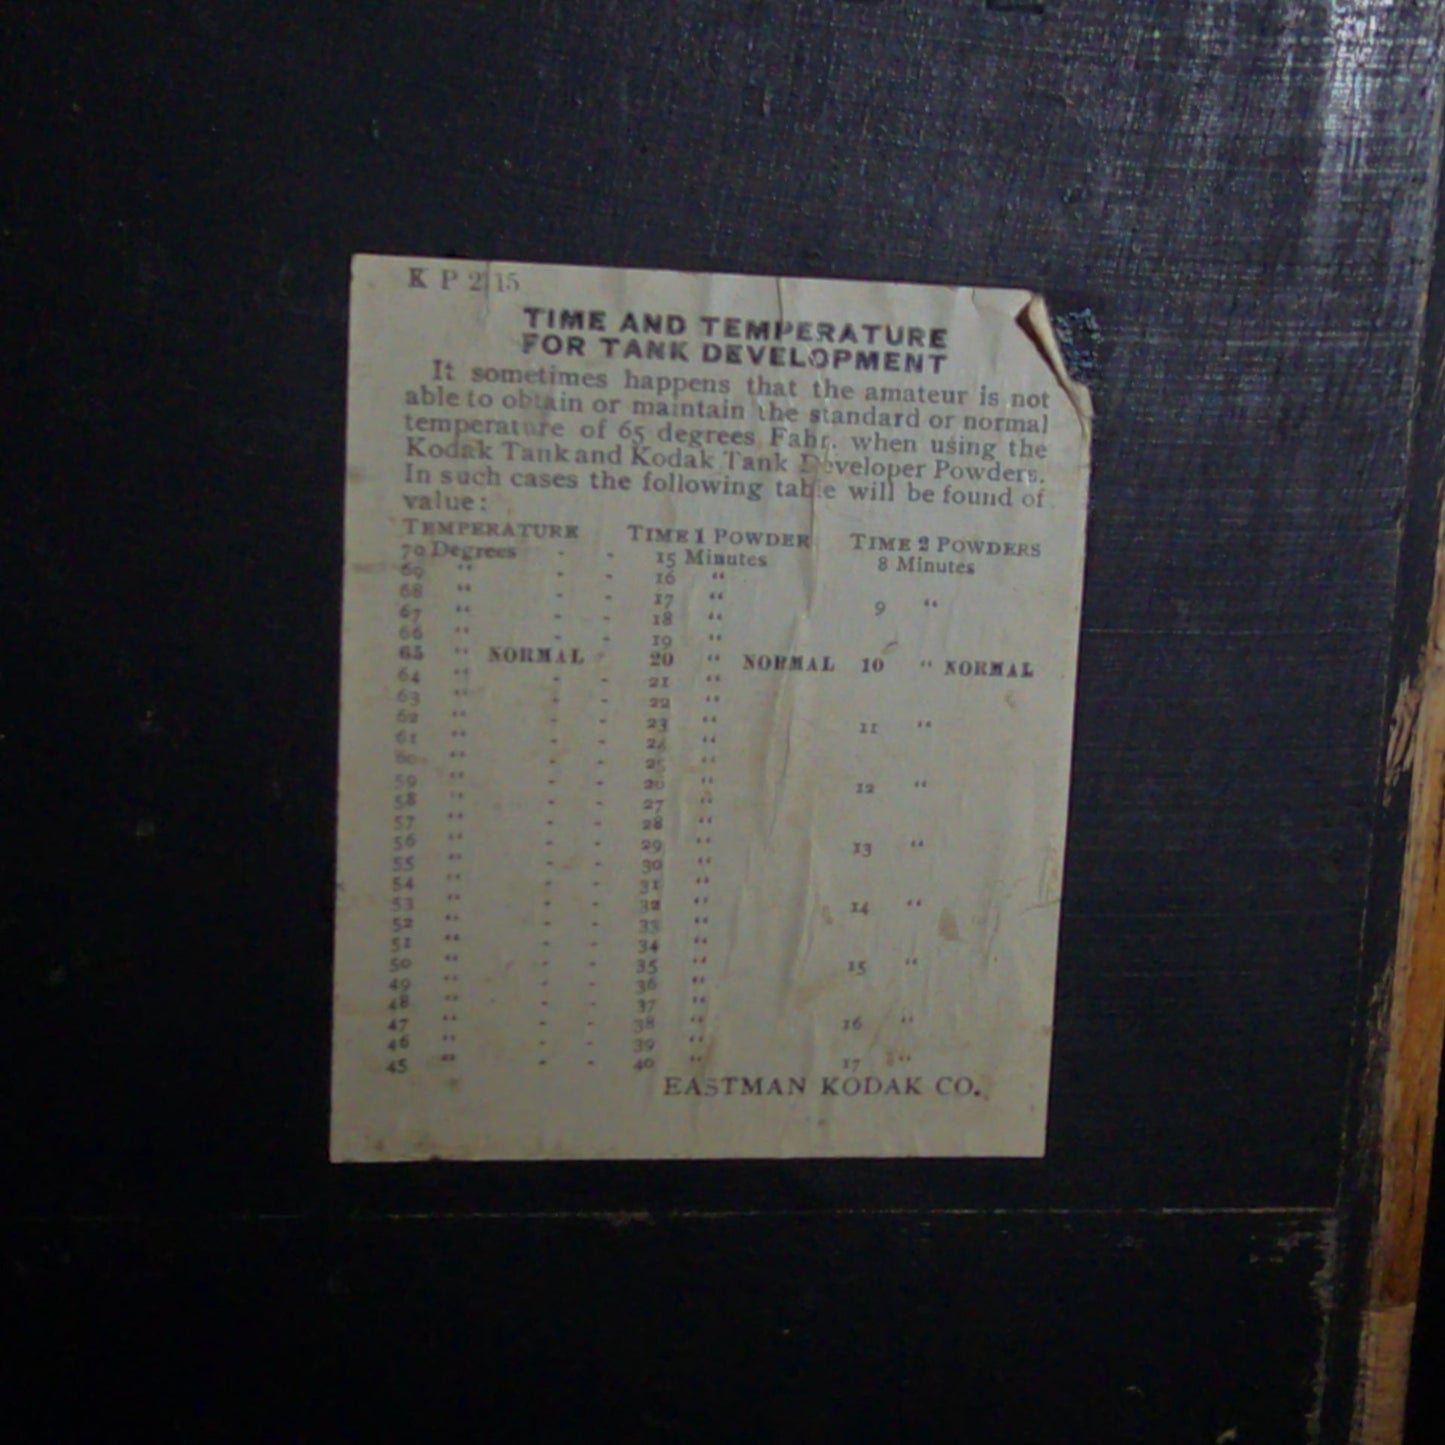 K P 215
TIME AND TEMPERATURE
FOR TANK DEVELOPMENT
It sometimes happens that the amateur is not
able to obtain or maintain the standard or normal
temperature of 65 degrees Fahr. when using the
Kodak Tank and Kodak Tank Developer Powders.
In such cases the following table will be found of
value:
TEMPERATURE TIME 1 POWDER TIME 2 POWDERS
70 Degrees - - 15 Minutes 8 Minutes
69 " - - 16 "
68 " - - 17 " 9 "
67 " - - 18 "
66 " - - 19 "
65 " NORMAL - 20 " NORMAL 10 " NORMAL
64 " - - 21 "
63 " - - 22 "
62 " - - 23 " 11 "
61 " - - 24 "
60 " - - 25 "
59 " - - 26 " 12 "
58 " - - 27 "
57 " - - 28 "
56 " - - 29 " 13 "
55 " - - 30 "
54 " - - 31 "
53 " - - 32 " 14 "
52 " - - 33 "
51 " - - 34 "
50 " - - 35 " 15 "
49 " - - 36 "
48 " - - 37 "
47 " - - 38 " 16 "
46 " - - 39 "
45 " - - 40 " 17 "
EASTMAN KODAK CO.